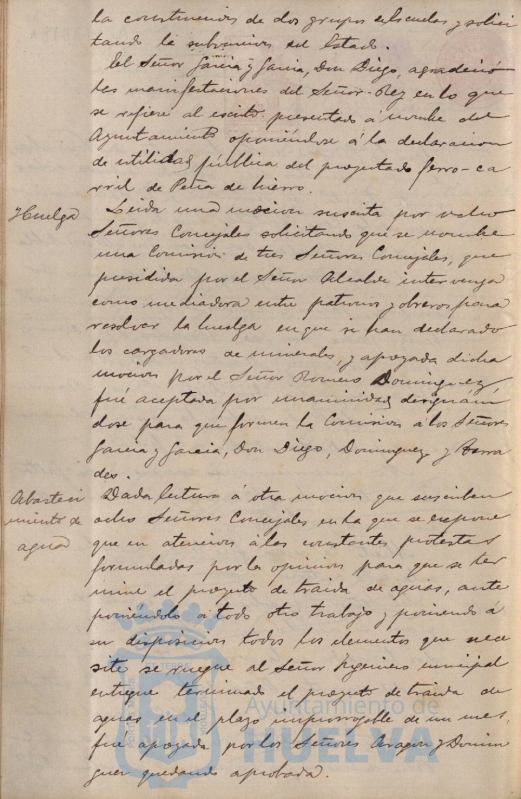 la construcción de dos grupos escuelas y solici
tando la subvención del Estado.
El Señor García y García, Don Diego, agradeció
las manifestaciones del Señor Rey en lo que
se refiere al escrito presentado á nombre del
Ayuntamiento oponiéndose á la declaracion
de utilidad pública del proyectado ferro-ca
rril de Peña de hierro.
Huelga
Leida una mocion suscrita por ocho
Señores Concejales solicitando que se nombre
una Comision de tres Señores Concejales, que
presidida por el Señor Alcalde intervenga
como mediadora entre patronos y obreros para
resolver la huelga en que se han declarado
los cargadores de minerales, y apoyada dicha
mocion por el Señor Romero Dominguez,
fué aceptada por unanimidad designán
dose para que formen la Comision á los Señores
Garcia y Garcia, Don Diego, Dominguez y
des.
Abasteci
miento de
agua
Dada lectura á otra mocion que suscriben
ocho Señores Concejales en la que se expone
que en atencion á las constantes protestas
formuladas por la opinion para que se ter
mine el proyecto de traida de aguas, ante
poniéndolo a todo otro trabajo y poniendo á
su disposicion todos los elementos que nece
site se ruegue al Señor Ingeniero municipal
entregue terminado el proyecto de traida de
aguas en el plazo improrrogable de un mes,
fué apoyada por los Señores Aragon y Domin
guez quedando aprobada.
Ayuntamiento de
HUELVA